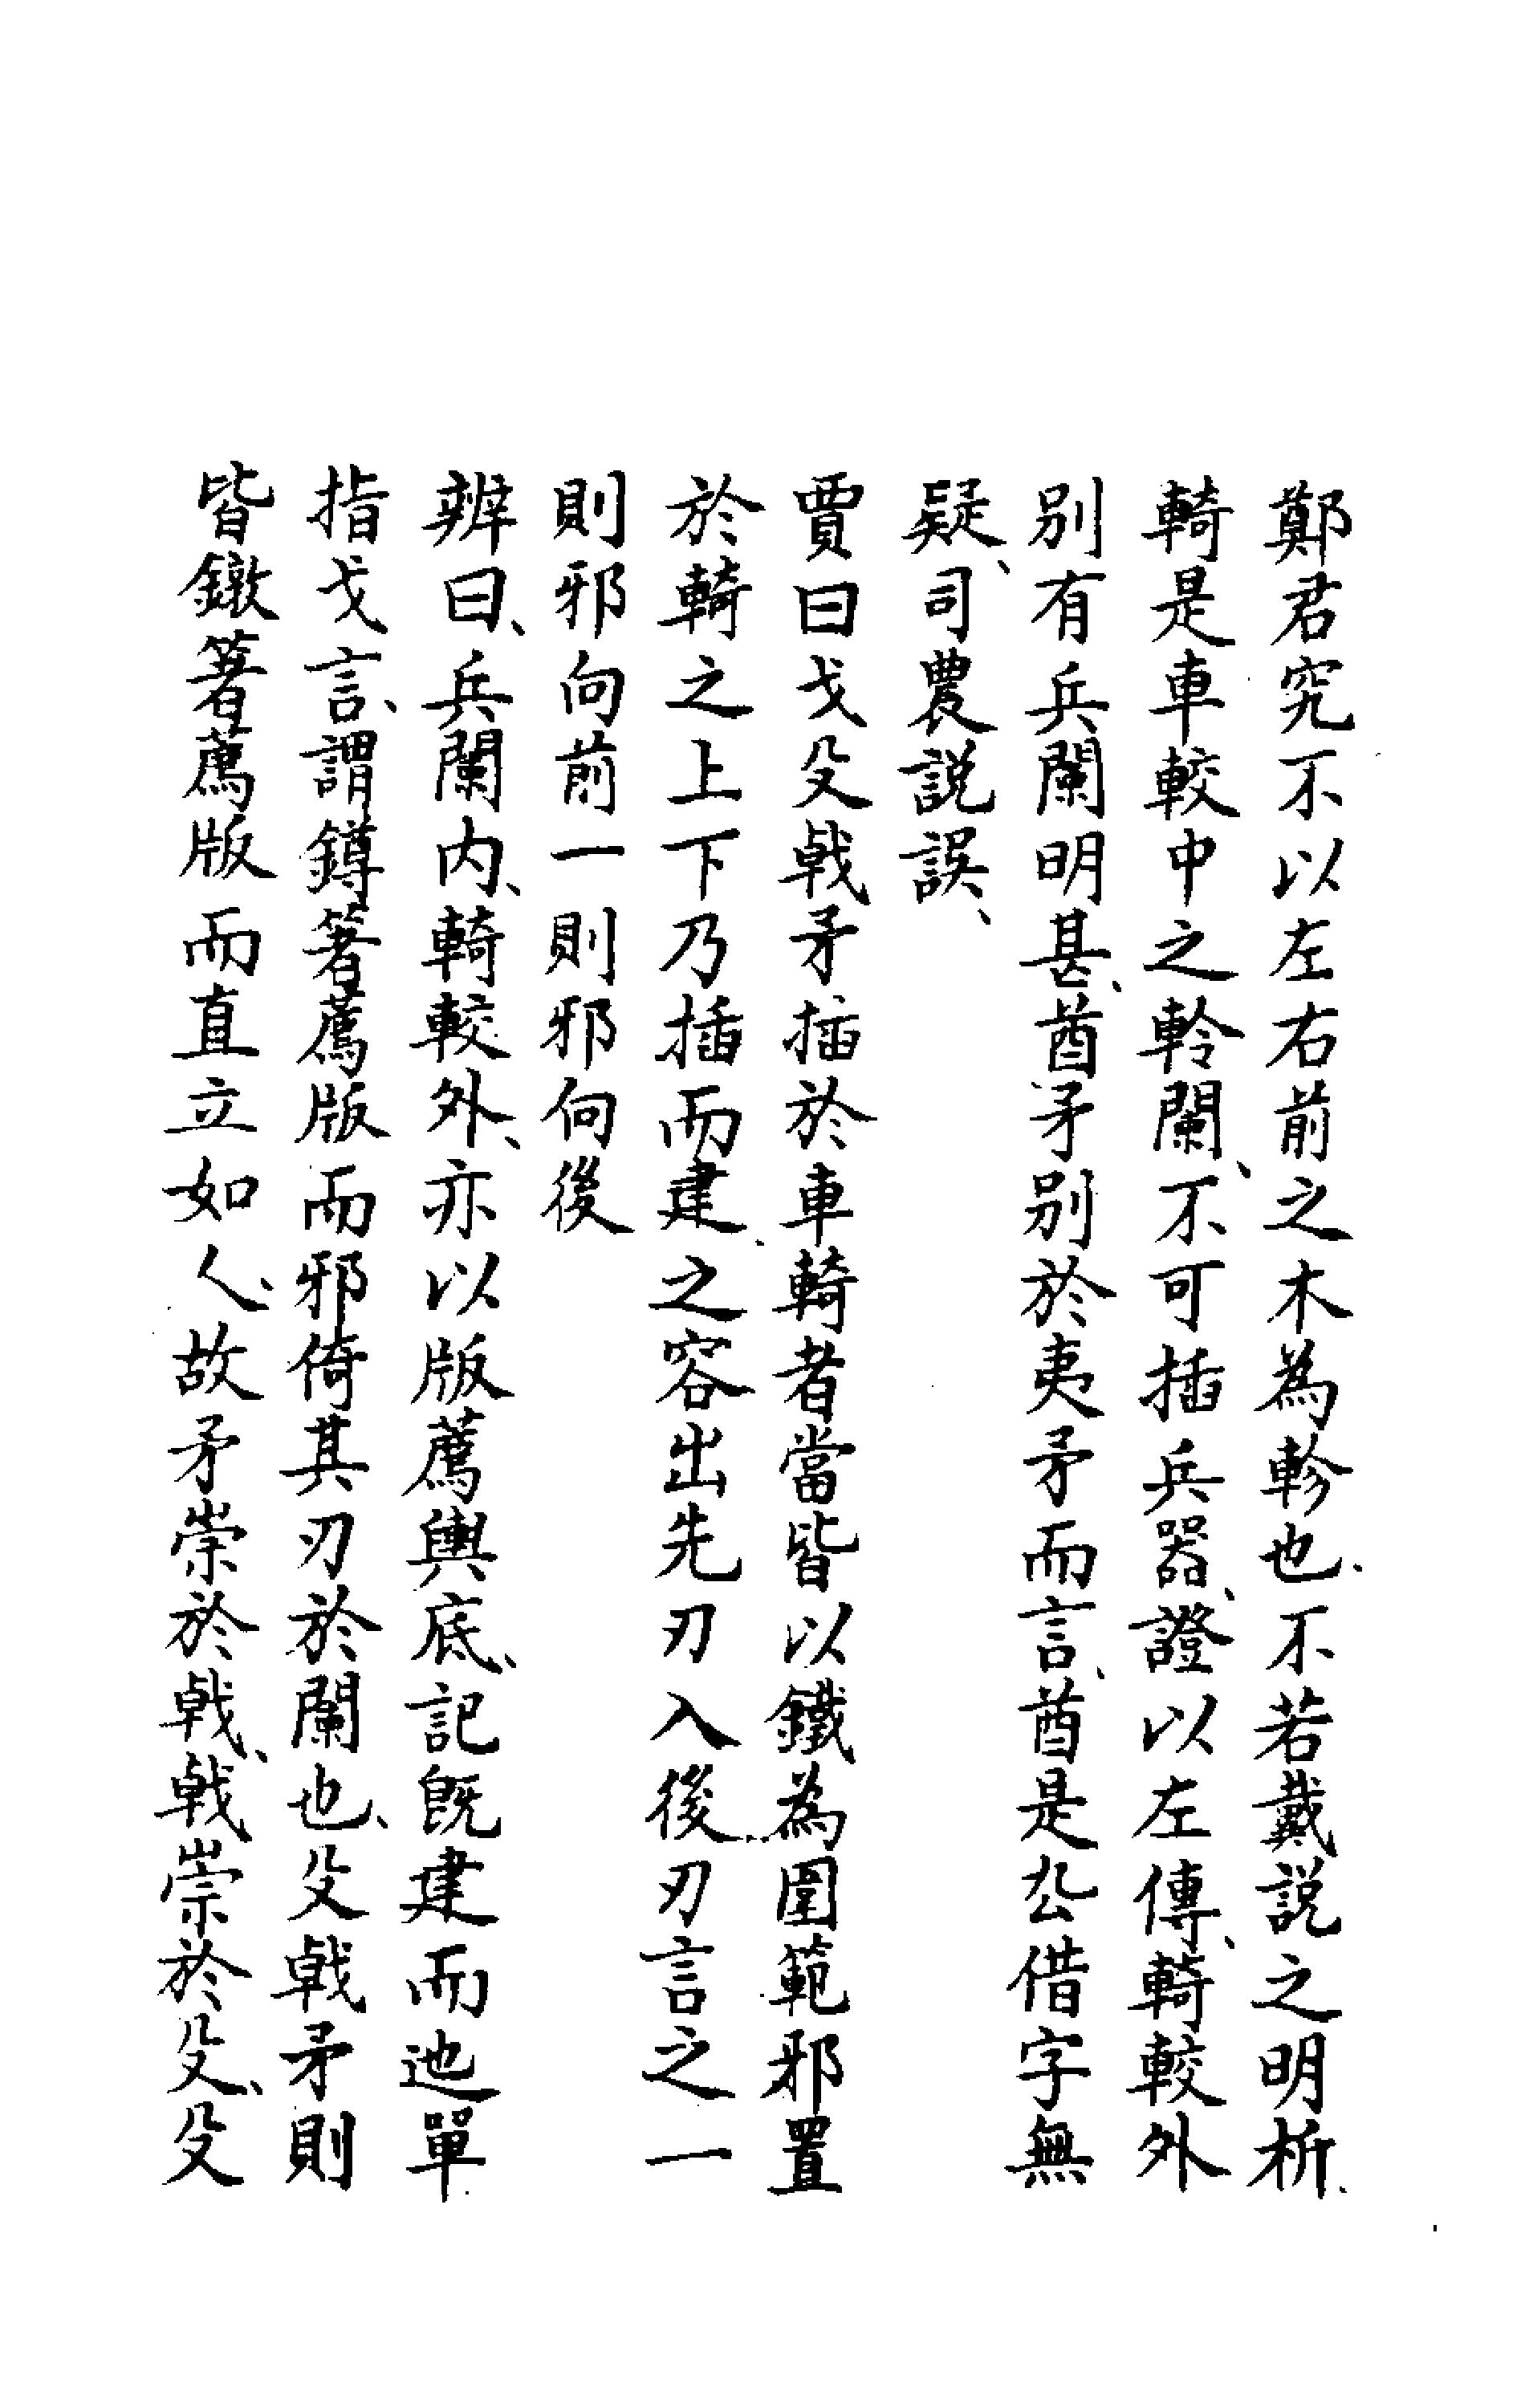 鄭君究不以左右前之木為軫也、不若戴説之明析、
輢是車較中之軨闌、不可插兵器、證以左傳、輢較外
別有兵闌明甚、酋矛別於夷矛而言、酋是厹借字無
疑、司農説誤、
賈曰戈殳戟矛插於車輢者當皆以鐵為圍範邪置
於輢之上下乃插而建之容出先刃入後刃言之一
則邪向前一則邪向後
辨曰、兵闌内、輢較外、亦以版薦輿底、記既建而迆單
指戈言、謂鐏箸薦版而邪倚其刃於闌也、殳戟矛則
皆鐓箸薦版而直立如人、故矛崇於戟、戟崇於殳、殳